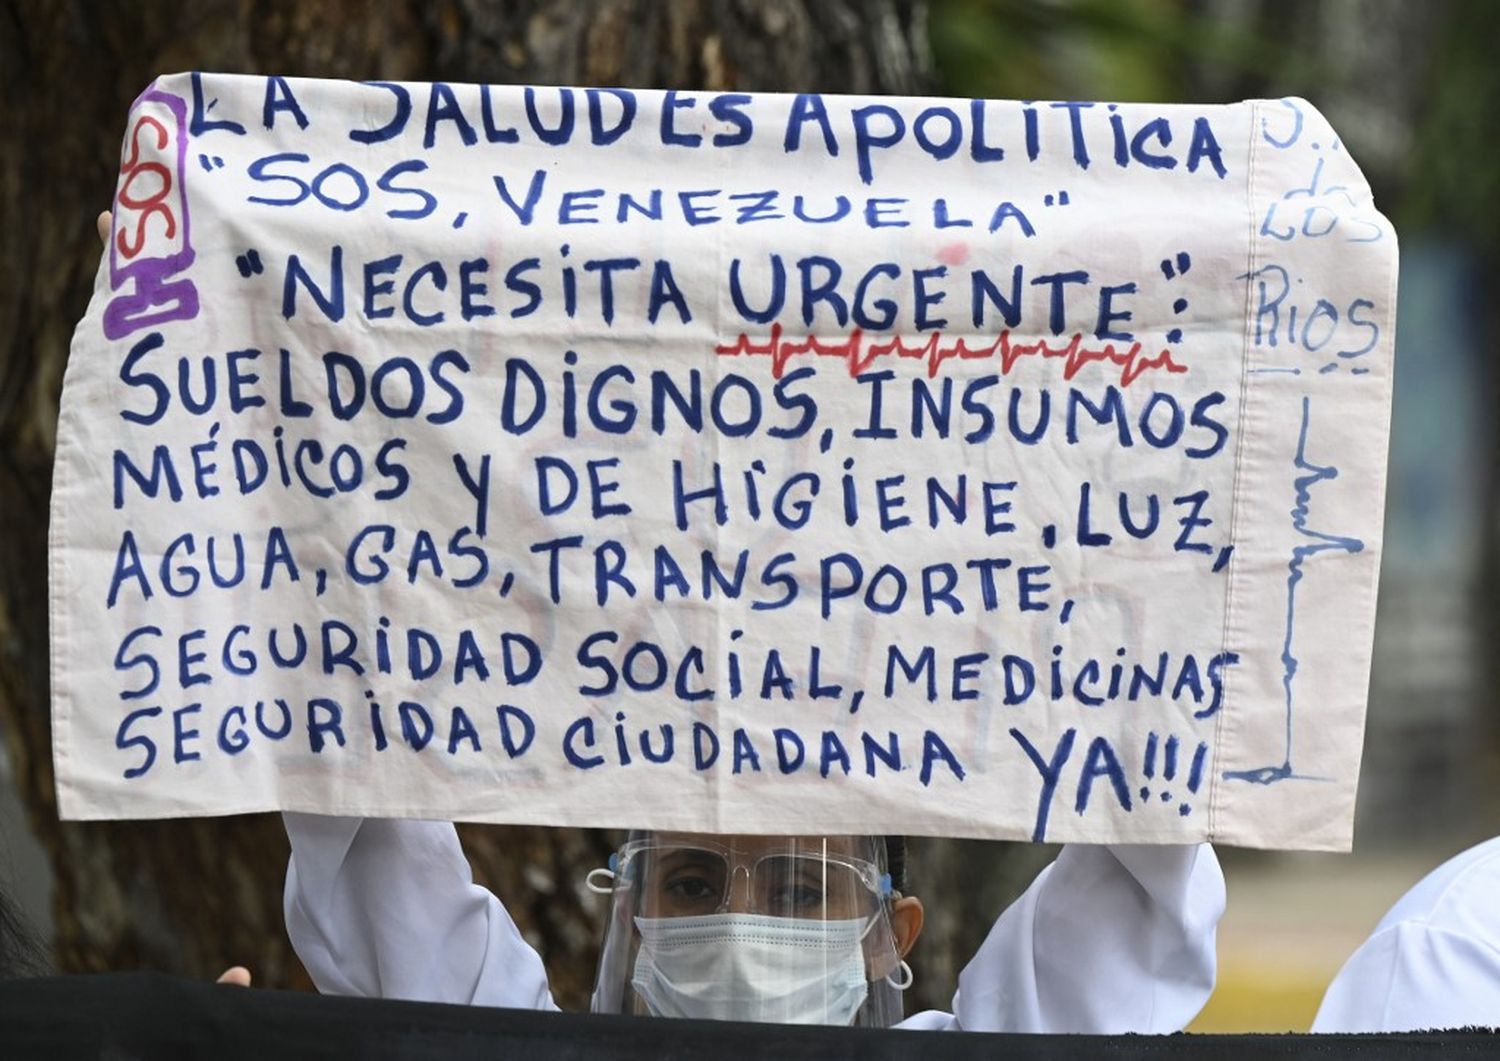 LA SALUD ES APOLÍTICA
SOS
"SOS, VENEZUELA"
"NECESITA URGENTE":
SUELDOS DIGNOS, INSUMOS
MÉDICOS Y DE HIGIENE, LUZ,
AGUA, GAS, TRANSPORTE,
SEGURIDAD SOCIAL, MEDICINAS
SEGURIDAD CIUDADANA YA!!!
LOS
RIOS